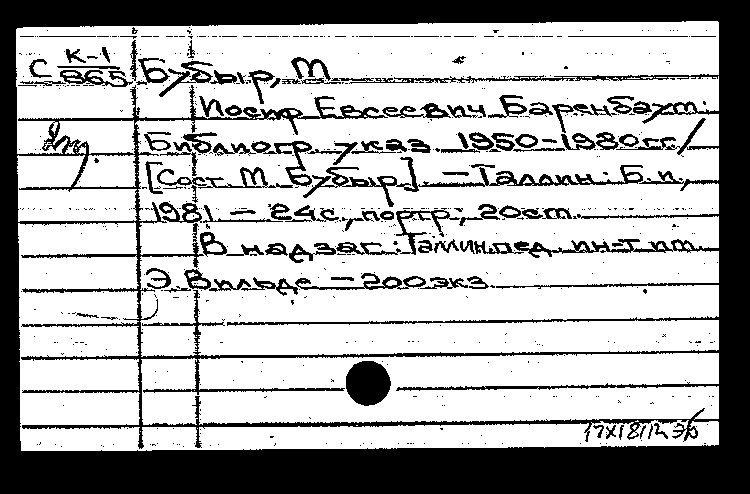 С К-1/865 Бубыр, М
Иосиф Евсеевич Баренбаум:
Библиогр. указ. 1950-1980гг/
[Сост. М. Бубыр]. — Таллин: Б.и.,
1981 — 24с., портр; 20см.
В надзаг.: Таллин. пед. ин-т им.
Э. Вильде — 200 экз.